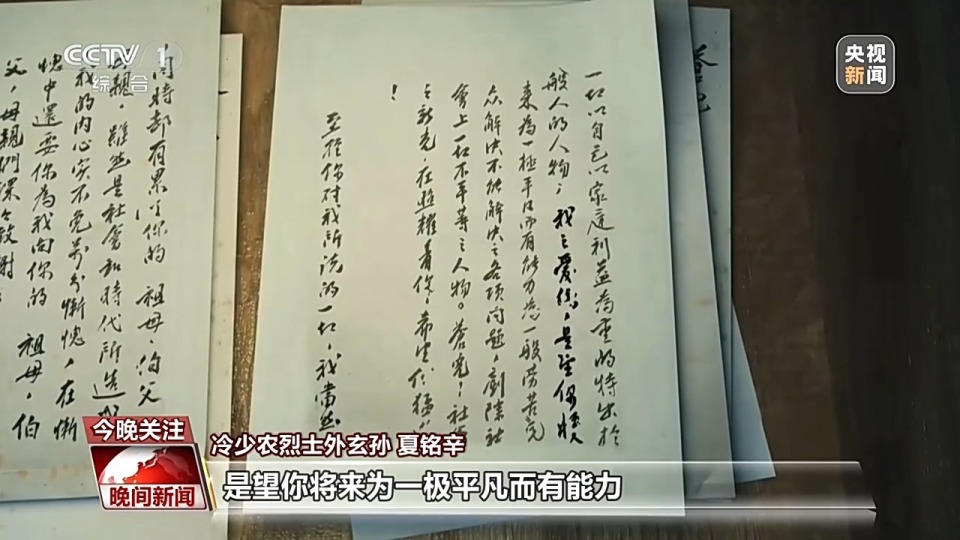 CCTV 1
综合
央视
新闻
一切以自己以家庭利益為重的特出於
般人的人物；我之愛你，是望你將
來為一極平凡而有能力為一般勞苦民
众解决不能解决之各項问题，剷除社
會上一切不平等之人物。蒼兒！社會
之新光，在照耀着你，希望你猛
！
至於你對我所說的一切，我當然
同時却有累了你的 祖母、伯父
母親，雖然是社會和時代所造成
我的内心实不免萬分慚愧，在慚
愧中還要你為我向你的 祖母，伯
父，母親們深々致謝！
今晚关注
晚间新闻
冷少农烈士外玄孙 夏铭辛
是望你将来为一极平凡而有能力